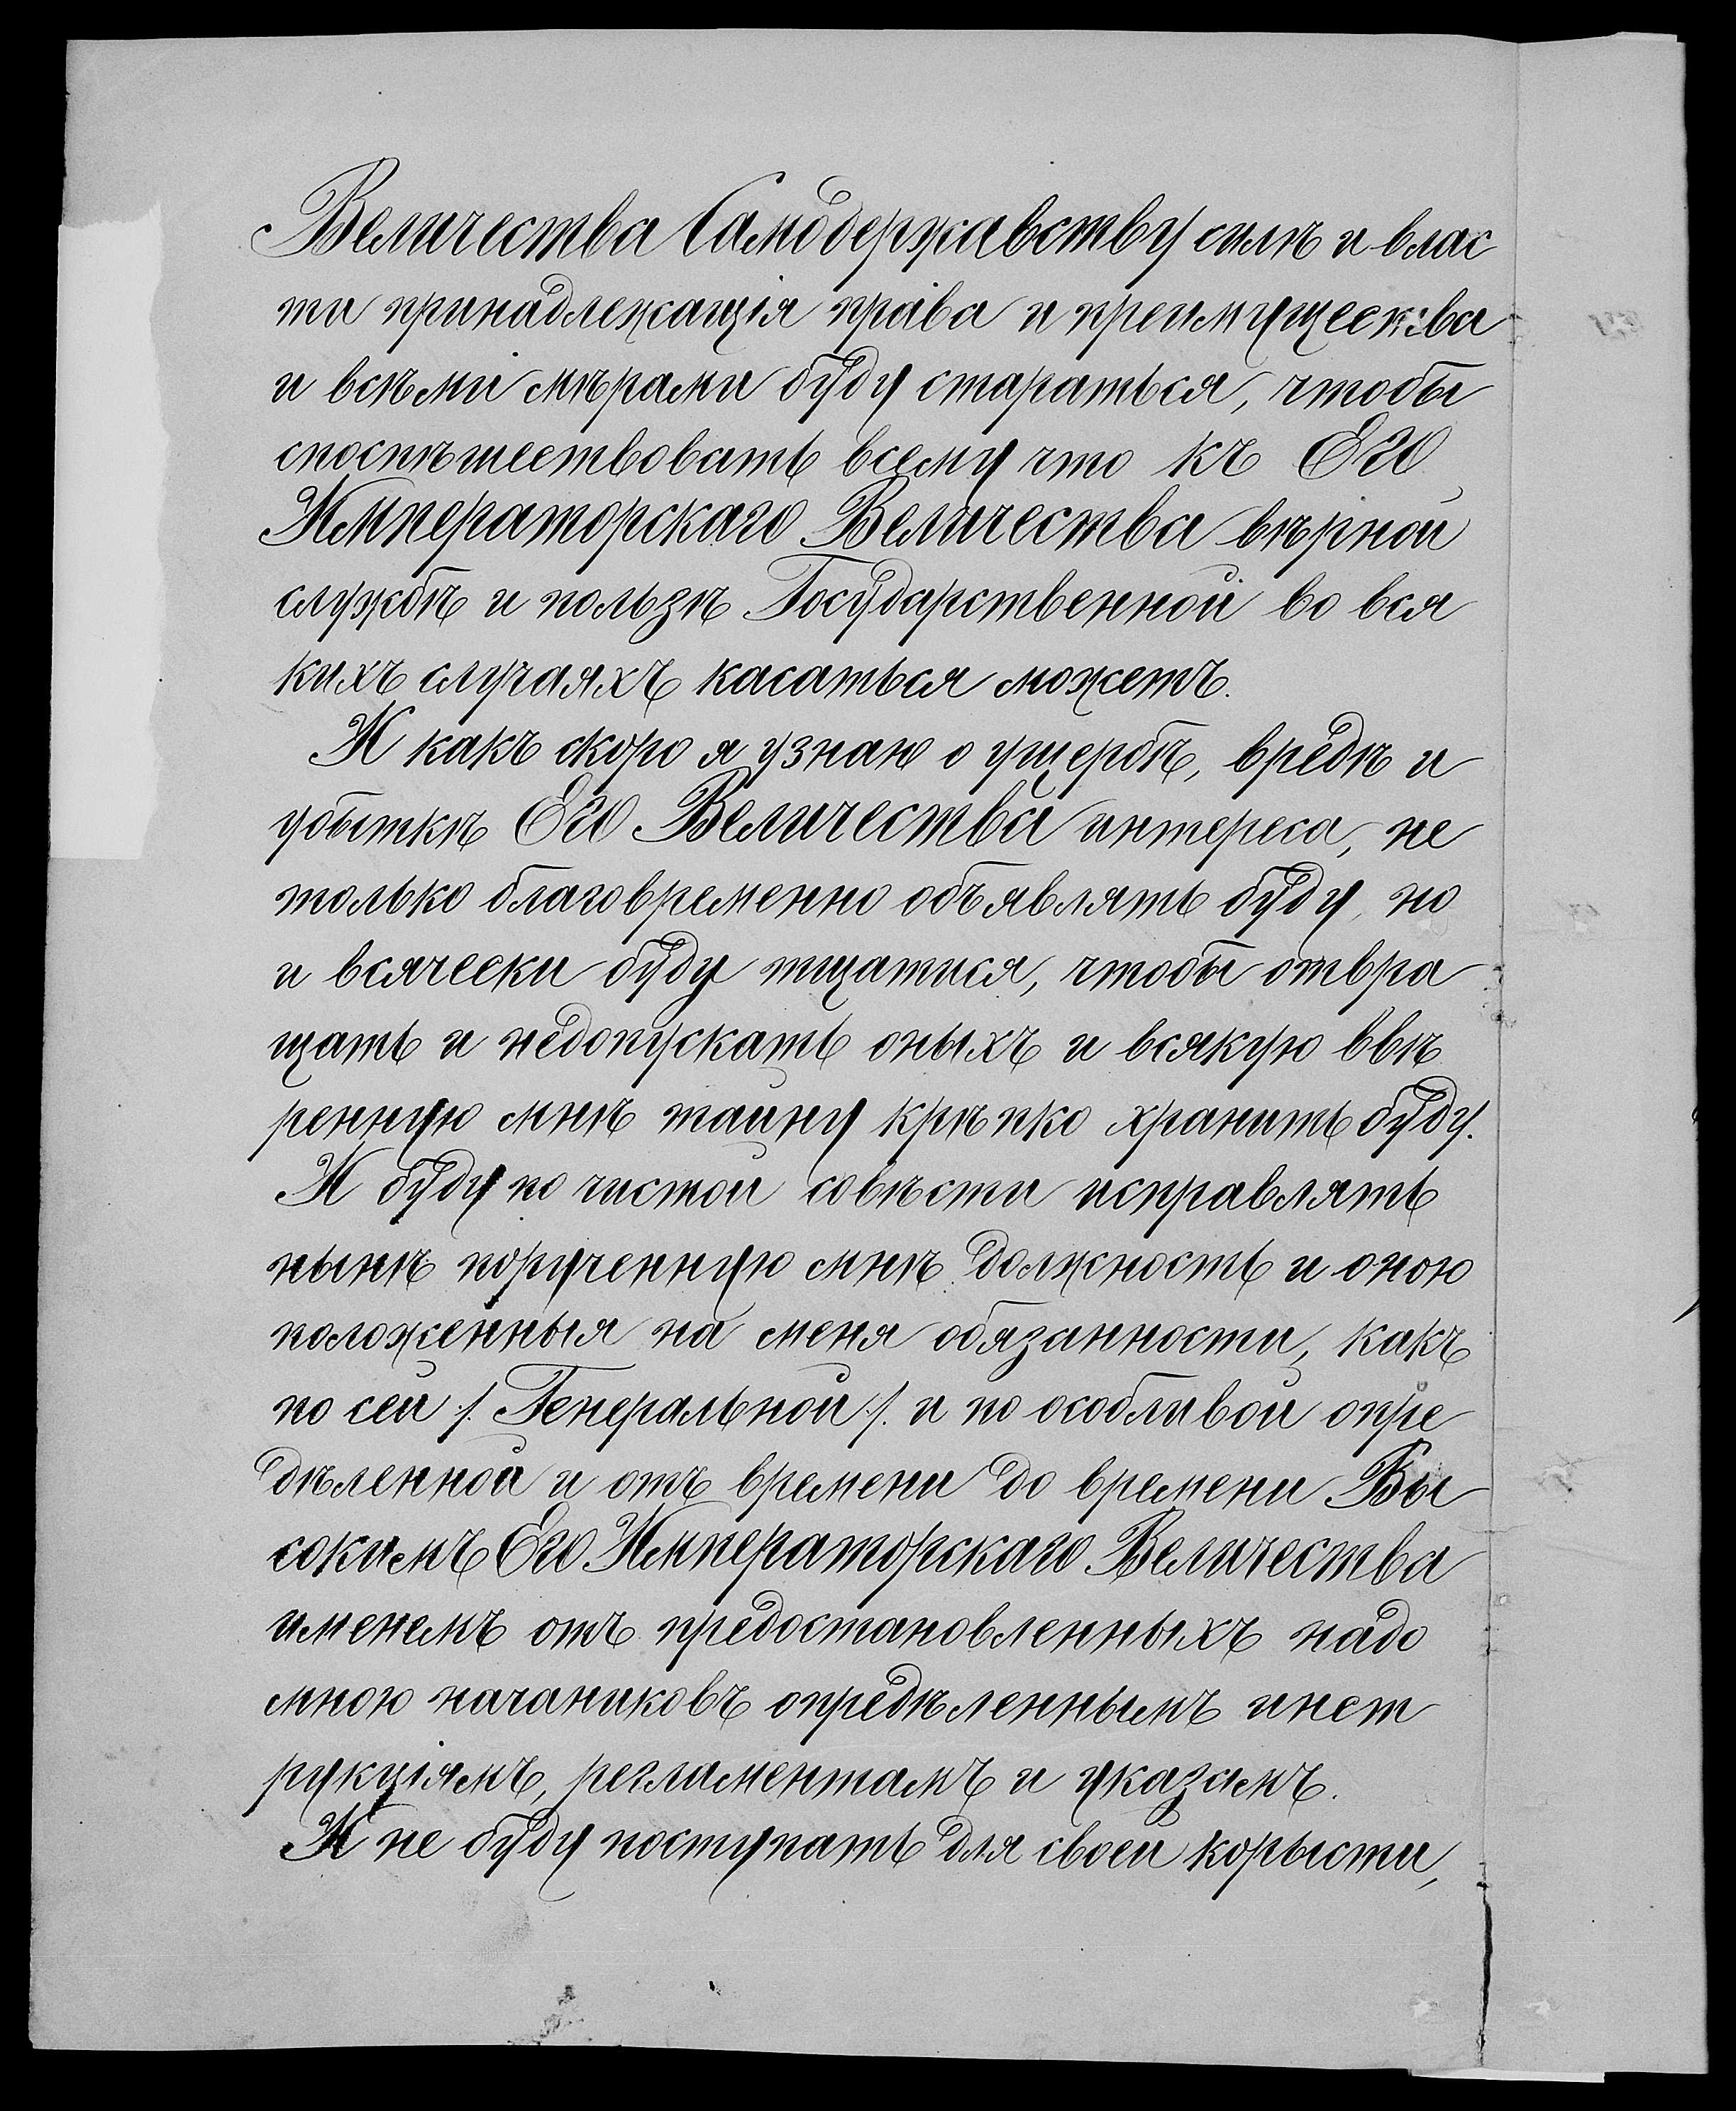 Величества Самодержавству силѣ и влас
ти принадлежащія права и преимущества
и всѣми мѣрами буду стараться, чтобы
споспѣшествовать всему что къ Его
Императорскаго Величества вѣрной
службѣ и пользѣ Государственной во вся
кихъ случаяхъ касаться можетъ.
И какъ скоро я узнаю о ущербѣ, вредѣ и
убыткѣ Его Величества интереса, не
только благовременно объявлять буду, но
и всячески буду тщатися, чтобы отвра
щать и недопускать оныхъ и всякую ввѣ
ренную мнѣ тайну крѣпко хранить буду.
И буду по чистой совѣсти исправлять
нынѣ порученную мнѣ должность и оною
положенныя на меня обязанности, какъ
по сей /. Генеральной ./. и по особливой опре
дѣленной и отъ времени до времени Вы
сокимъ Его Императорскаго Величества
именемъ отъ предостановленныхъ надо
мною начаниковъ опредѣленнымъ инст
рукціямъ, регламентамъ и указамъ.
И не буду поступать для своей корысти,